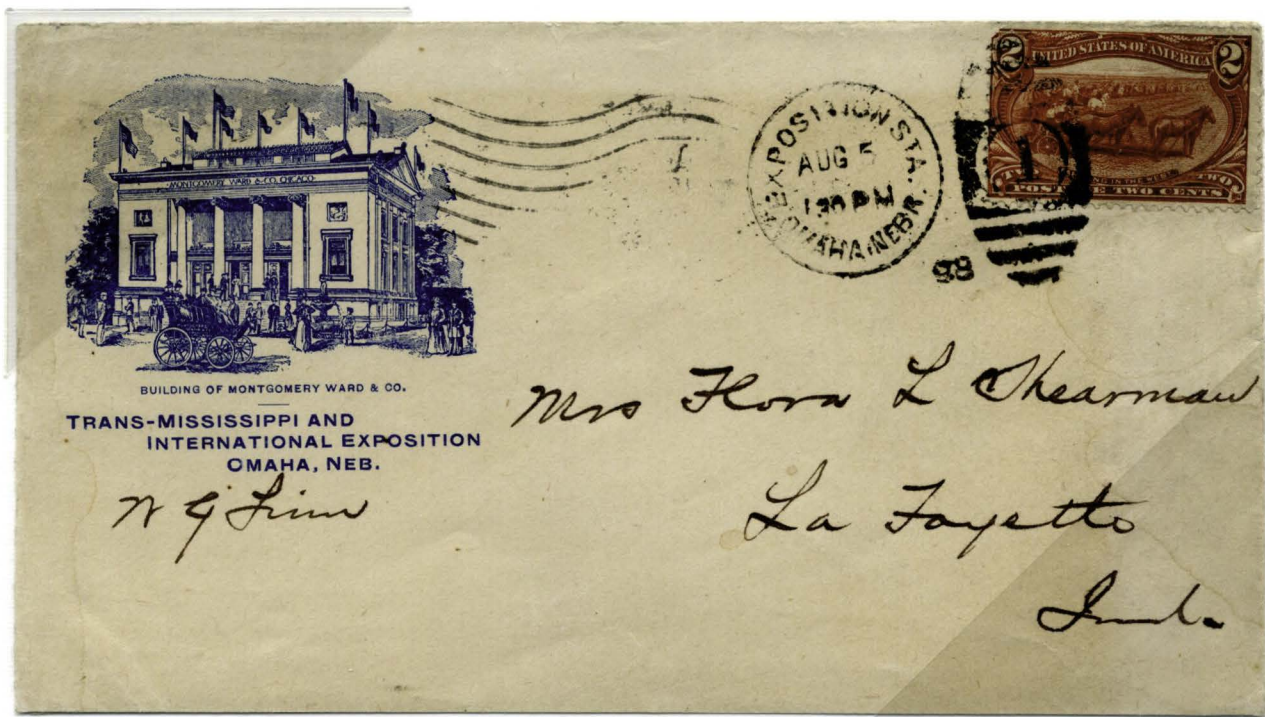 MONTGOMERY WARD & CO. CHICAGO
BUILDING OF MONTGOMERY WARD & CO.
TRANS-MISSISSIPPI AND
INTERNATIONAL EXPOSITION
OMAHA, NEB.
EXPOSITION STA.
AUG 5
1 30 PM
OMAHA, NEBR.
98
1
2 2
UNITED STATES OF AMERICA
POSTAGE TWO CENTS
Mrs Flora L Shearman
La Fayette
Ind.